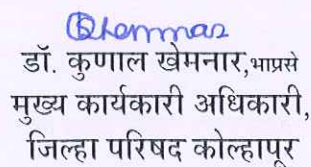 डॉ. कुणाल खेमनार,भाप्रसे
मुख्य कार्यकारी अधिकारी,
जिल्हा परिषद कोल्हापूर